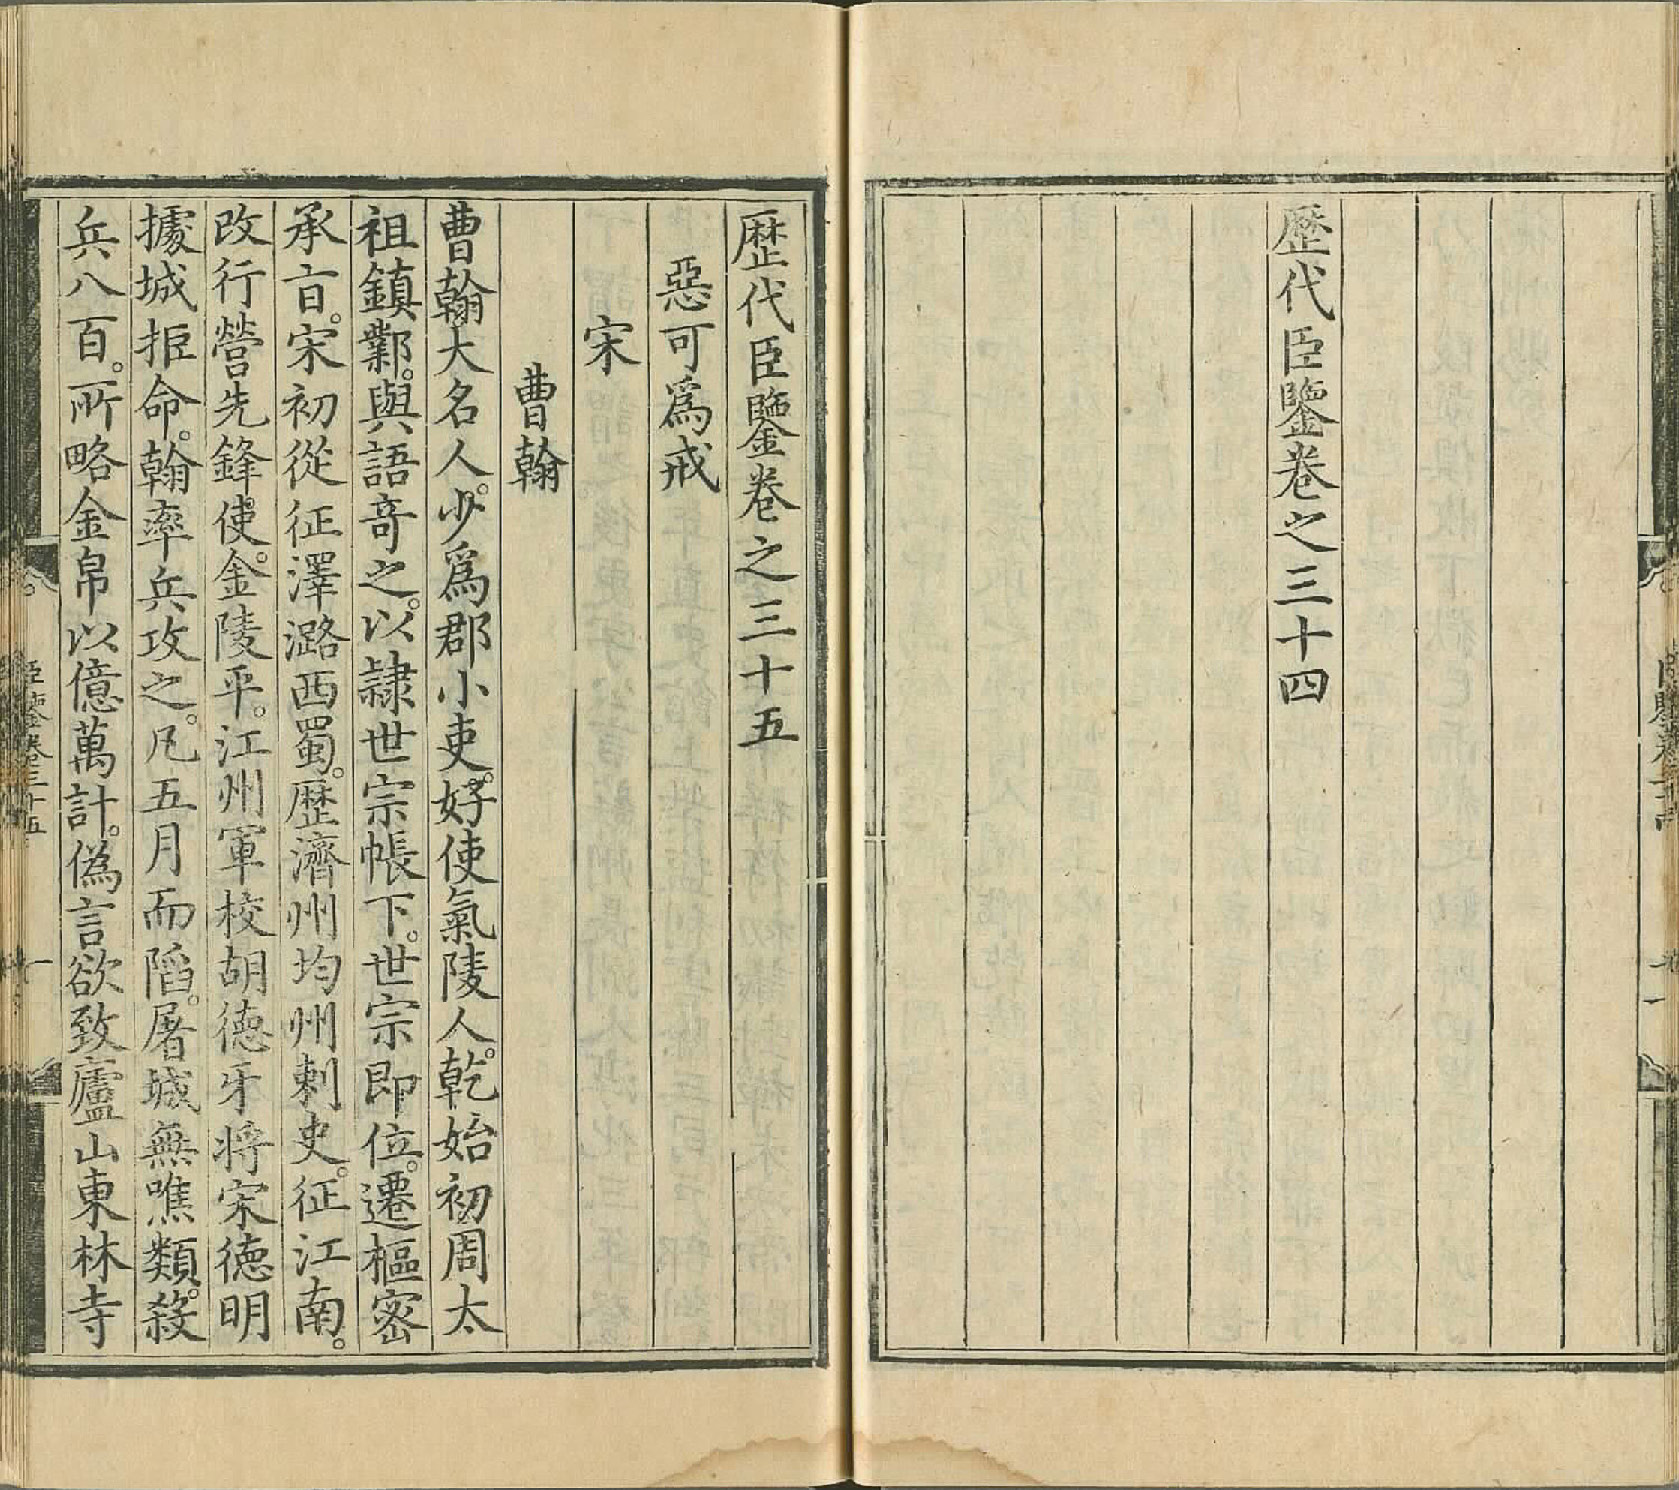 歷代臣鑒卷之三十四
歷代臣鑒卷之三十五
惡可爲戒
宋
曹翰
曹翰大名人。少爲郡小吏。好使氣陵人。乾始初周太
祖鎮鄴。與語竒之。以隷世宗帳下。世宗即位。遷樞密
承㫖。宋初從征澤潞西蜀。歷濟州均州刺史。征江南。
改行營先鋒使。金陵平。江州軍校胡德牙將宋德明
據城拒命。翰率兵攻之。凡五月而陷。屠城無噍類。殺
兵八百。所略金帛以億萬計。僞言欲致廬山東林寺
臣鑒卷三十五
一